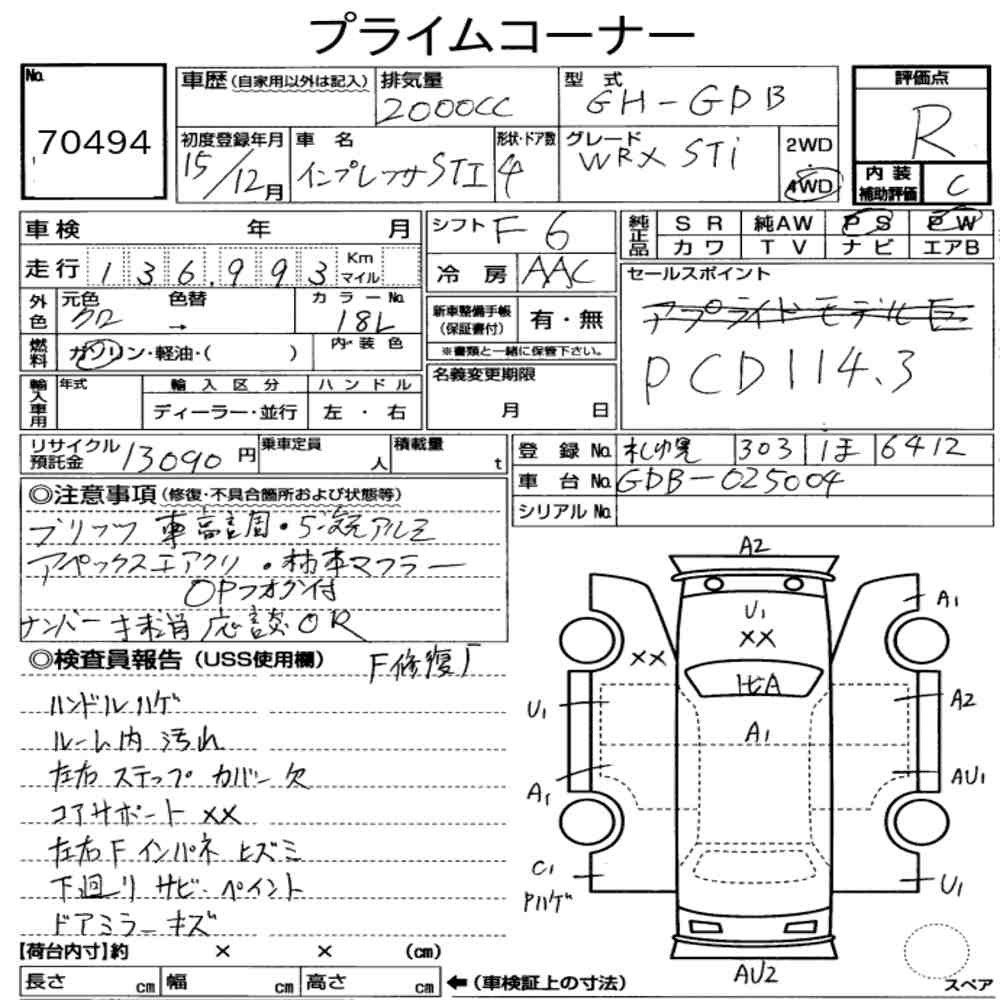 プライムコーナー
No.
70494
車歴(自家用以外は記入)
排気量
2000CC
型 式
GH-GDB
評価点
R
初度登録年月
15/12月
車 名
インプレッサSTI
形状・ドア数
4
グレード
WRX STi
2WD
4WD
内装
補助評価
C
車検 年 月
シフト F 6
純正品
SR 純AW PS PW
カワ TV ナビ エアB
走行 136,993 Km マイル
冷房 AAC
セールスポイント
アプライドモデルE
PCD114.3
外色
元色 クロ
色替 →
カラーNo. 18L
新車整備手帳
(保証書付)
有・無
※書類と一緒に保管下さい。
燃料
ガソリン・軽油・( )
内装色
輸入車用
年式
輸入区分
ハンドル
ディーラー・並行
左・右
名義変更期限
月 日
リサイクル
預託金
13090円
乗車定員
人
積載量
t
登録No. 札幌 303 ほ 6412
車台No. GDB-025004
シリアルNo.
◎注意事項(修復・不具合箇所および状態等)
ブリッツ 車高調・5次元アルミ
アペックスエアクリ・柿本マフラー
OPフォグ付
ナンバー抹消応談OR
◎検査員報告(USS使用欄)
F修復歴
ハンドルハゲ
ルーム内 汚れ
左右ステップカバー欠
コアサポートXX
左右Fインパネヒズミ
下廻りサビ・ペイント
ドアミラーキズ
A2
U1
XX
XX
A1
ヒA
U1
A2
A1
A1
AU1
C1
Pハゲ
U1
AU2
スペア
【荷台内寸】約 × × (cm)
長さ cm 幅 cm 高さ cm
←(車検証上の寸法)